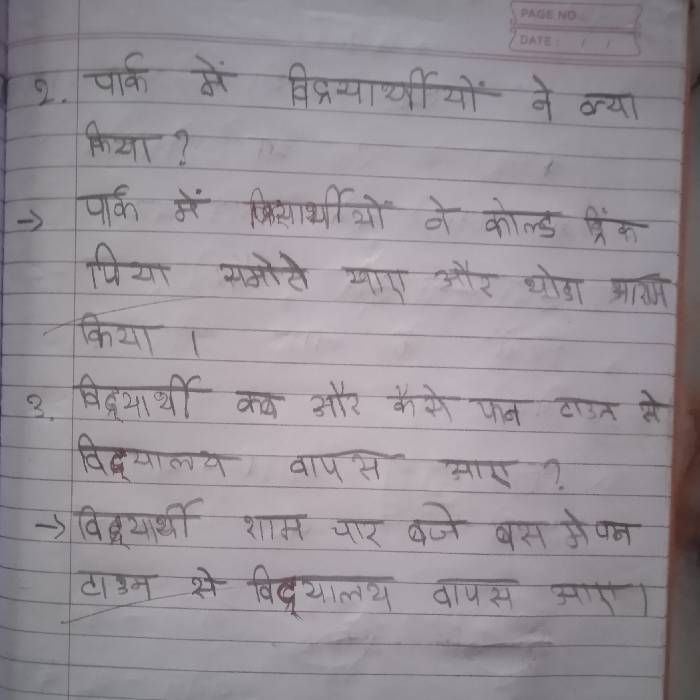 PAGE NO.:
DATE: / /
२. पार्क में विद्रयार्थीयों ने क्या
किया ?
→ पार्क में विद्यार्थीयों ने कोल्ड ड्रिंक
पिया समोसे खाए और थोडा आराम
किया ।
३. विद्रयार्थी कब और कैसे फन टाउन से
विद्रयालय वापस आए ?
→ विद्रयार्थी शाम चार बजे बस से फन
टाउन से विद्रयालय वापस आए।